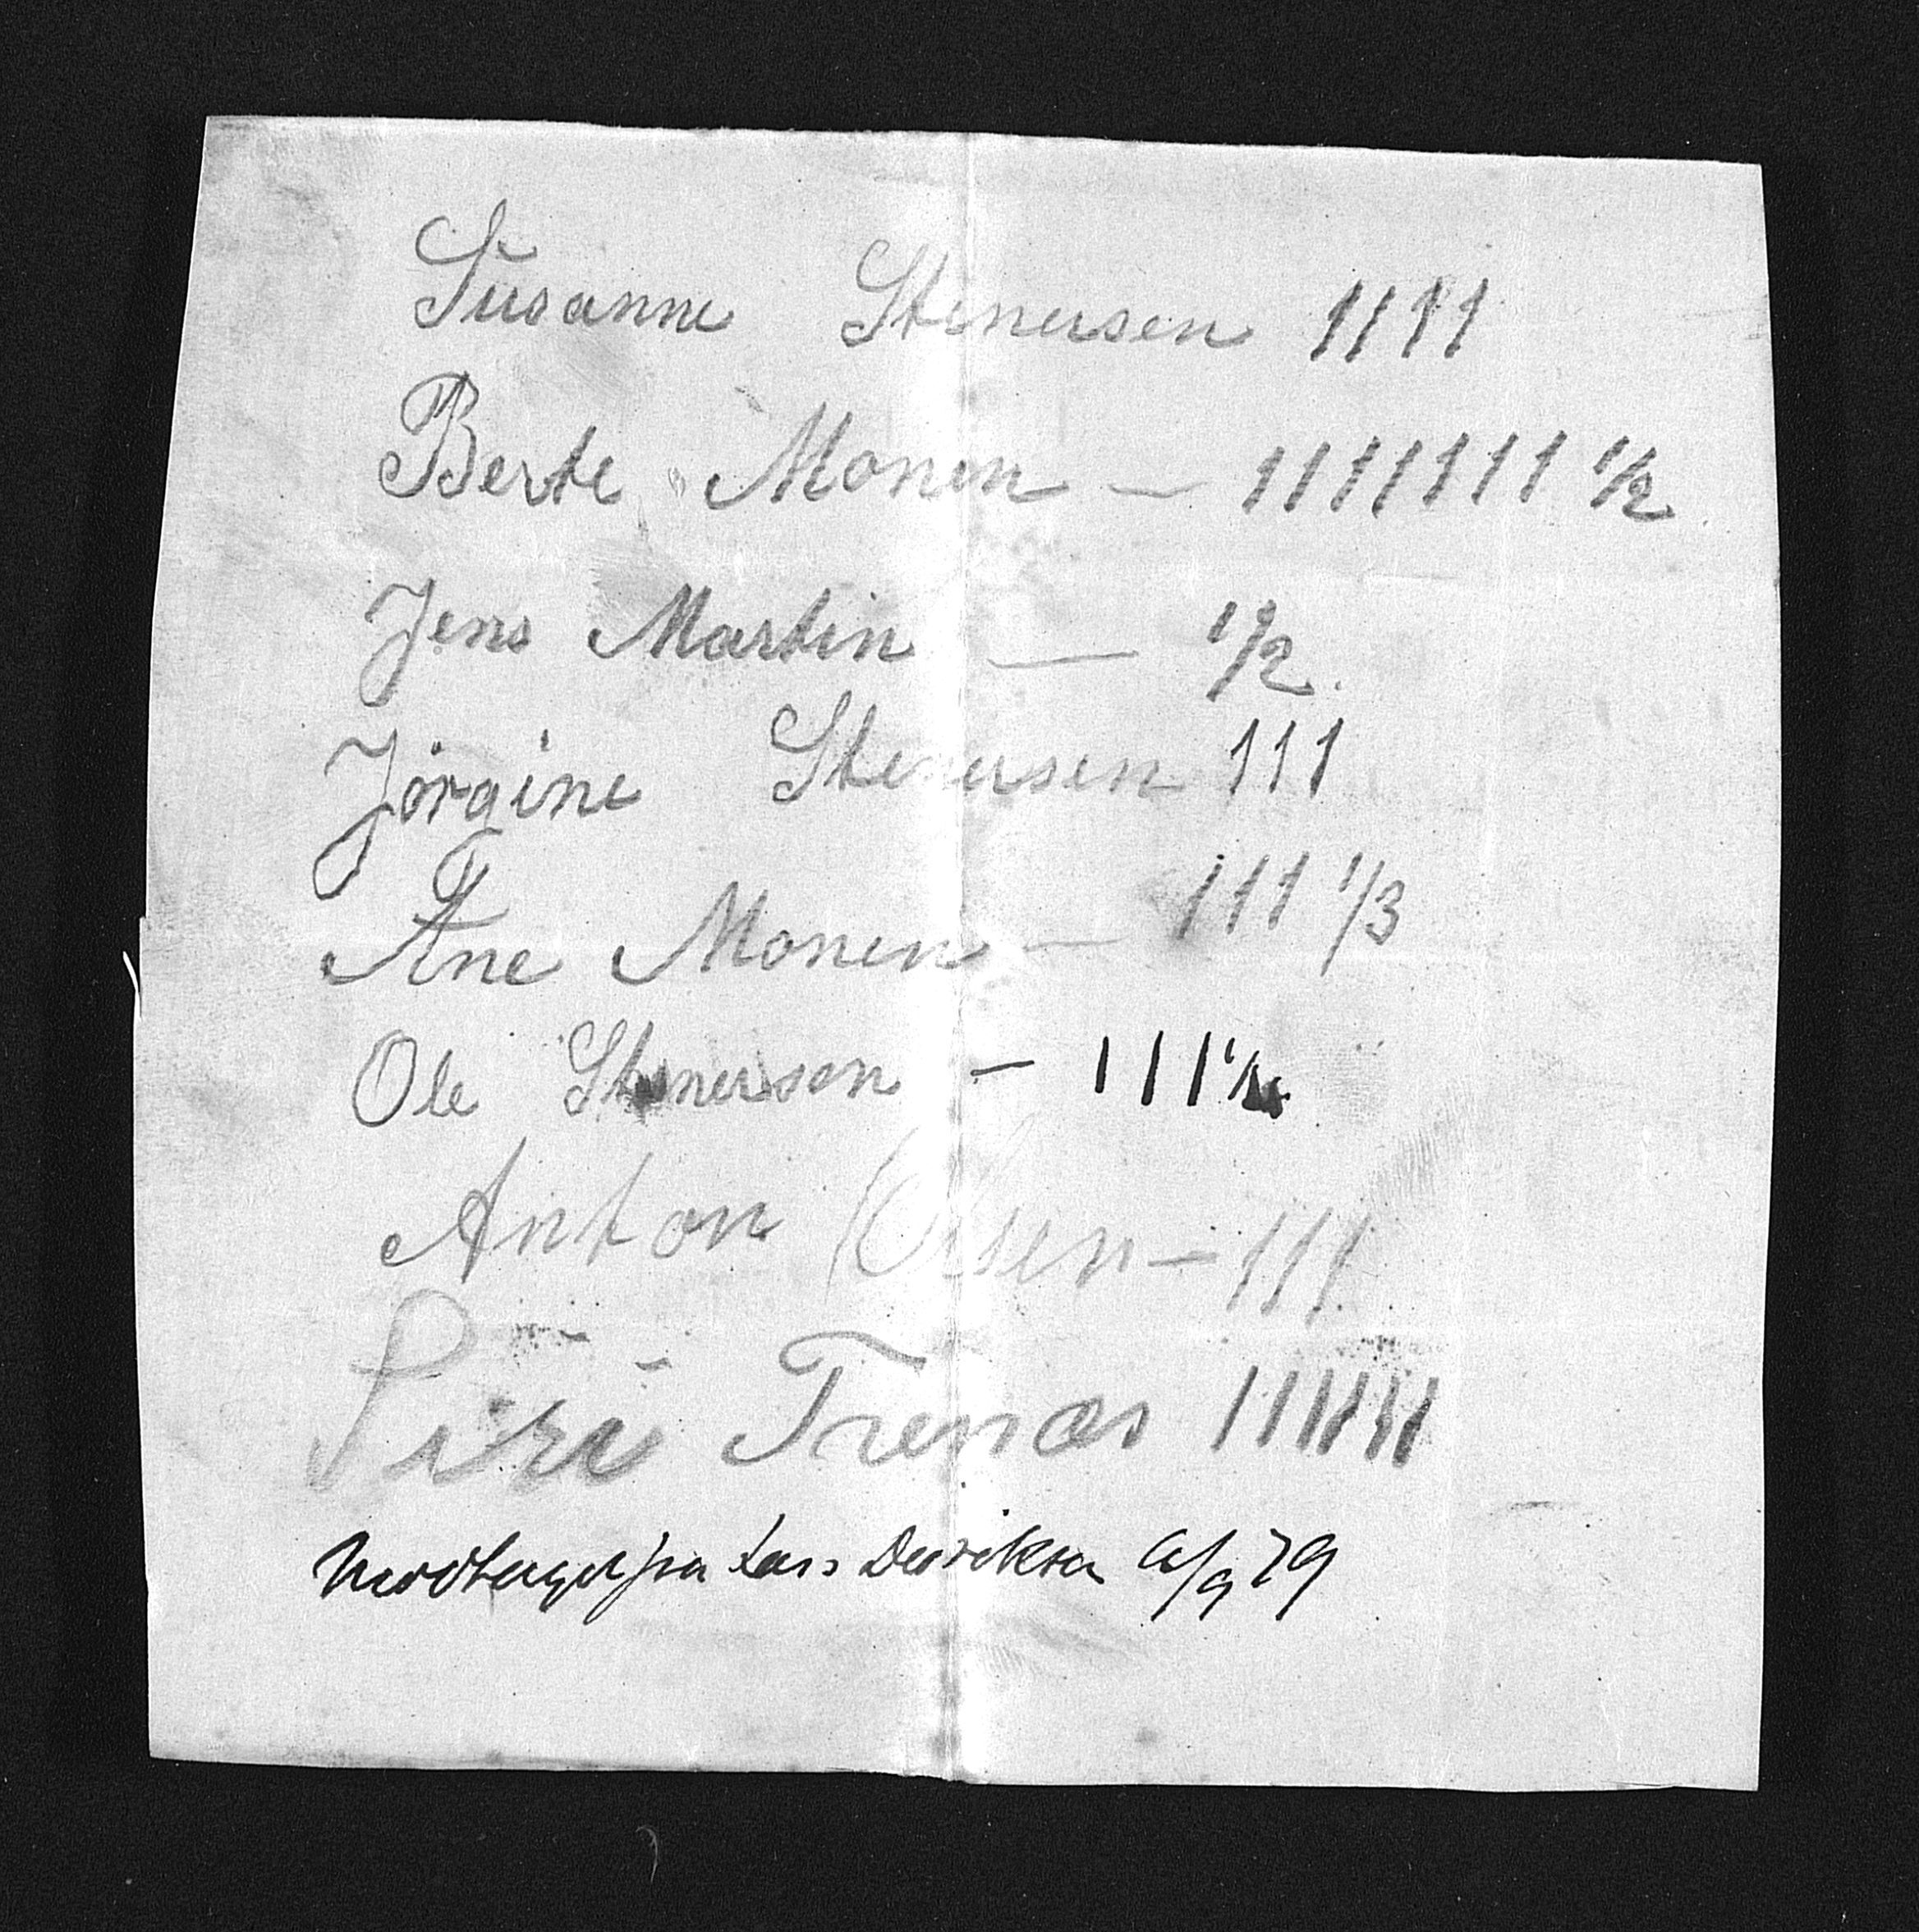 Susanne Stenersen 1111
Berte Monen — 1111111 1/2
Jens Martin — 1/2.
Jørgine Stenersen 111
Ane Monen — 111 1/3
Ole Stenersen — 111
Anton Olsen — 111
Siri Trenæs
fra Lars Deriksen /9 79